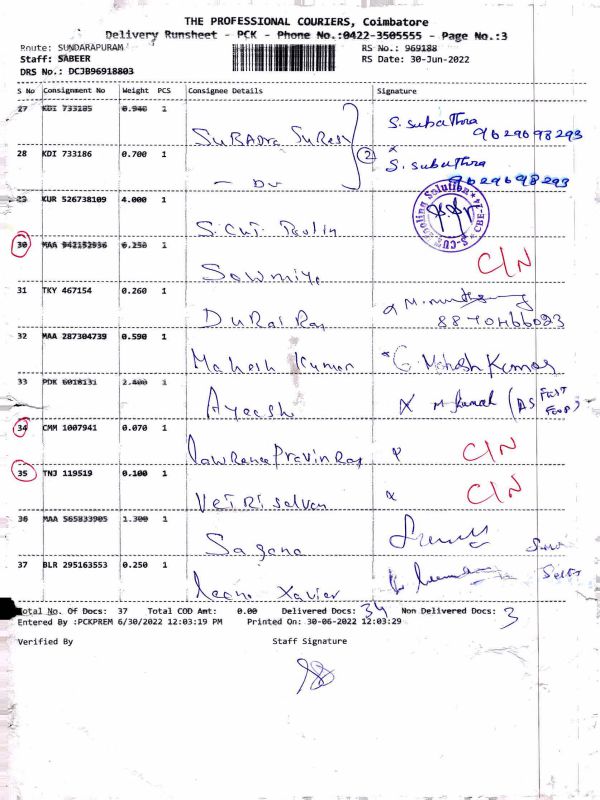 THE PROFESSIONAL COURIERS, Coimbatore
Delivery Runsheet - PCK - Phone No.:0422-3505555 - Page No.:3
Route: SUNDARAPURAM RS No.: 969188
Staff: SABEER RS Date: 30-Jun-2022
DRS No.: DCJB96918803
S No Consignment No Weight PCS Consignee Details Signature
27 KDI 733185 0.940 1 S. Subathra
SUBADRA SURESH 9629698293
28 KDI 733186 0.700 1 2 S. Subathra
- DV 9629698293
29 KUR 526738109 4.000 1
S.CUT Toolin
30 MAA 942152936 0.250 1 C/N
Sowmiya
31 TKY 467154 0.260 1
DURAI Raj 8870466023
32 MAA 287304739 0.590 1
Mahesh Kumar G. Mahesh Kumar
33 PDK 6018131 2.400 1
Ayeesh M. Kumal (AS FAST FOOD)
34 CMM 1007941 0.070 1 C/N
Lawrance Pravin Raj
35 TNJ 119519 0.100 1 C/N
Vetriselvan
36 MAA 565833905 1.300 1
Sagana
37 BLR 295163553 0.250 1
Leeno Xavier
Total No. Of Docs: 37 Total COD Amt: 0.00 Delivered Docs: 34 Non Delivered Docs: 3
Entered By :PCKPREM 6/30/2022 12:03:19 PM Printed On: 30-06-2022 12:03:29
Verified By Staff Signature